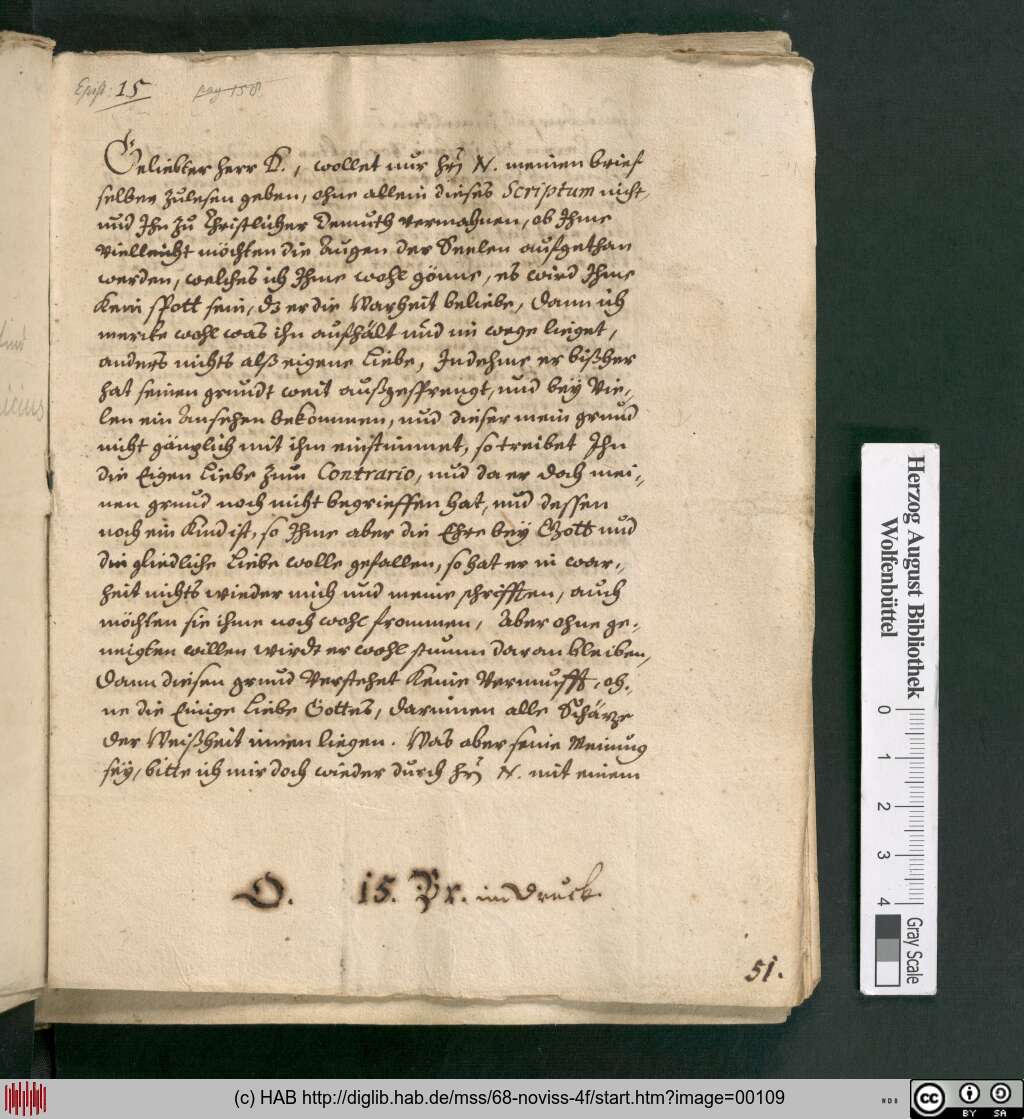 Epist: 15 pag 158.
Geliebter Herr K., wollet nur Hrn N. meinen brief
selber zulesen geben, ohne allein dieses Scriptum nicht,
und Ihn zu Christlicher Demuth vermahnen, ob Ihme
vielleicht möchten die Augen der Seelen aufgethan
werden, welches ich Ihme wohl gönne, es wird Ihme
kein spott sein, dz er die Warheit beliebe, dann ich
mercke wohl was ihn aufhält und im wege lieget,
anders nichts alß eigene Liebe, Indehme er bißher
hat seinen grundt weit außgesprengt, und bey vie-
len ein Ansehen bekommen, und dieser mein grund
nicht gäntzlich mit ihm einstimmet, so treibet Ihn
die Eigen Liebe zum Contrario, und da er doch mei-
nen grund noch nicht begrieffen hat, und dessen
noch ein Kind ist, so Ihme aber die Ehre bey Gott und
die gliedliche Liebe wolle gefallen, so hat er in war-
heit nichts wieder mich und meine schrifften, auch
möchten sie ihme noch wohl frommen, Aber ohne ge-
neigten willen wirdt er wohl stumm daran bleiben,
Dann diesen grund verstehet keine Vernunfft, oh-
ne die Einige Liebe Gottes, darinnen alle Schätze
der Weißheit innen liegen. Was aber seine Meinung
sey, bitte ich mir doch wieder durch Hrn N. mit einem
O. 15. Br. im Druck.
51.
Herzog August Bibliothek
Wolfenbüttel
0 1 2 3 4
Gray Scale
(c) HAB http://diglib.hab.de/mss/68-noviss-4f/start.htm?image=00109
cc BY SA